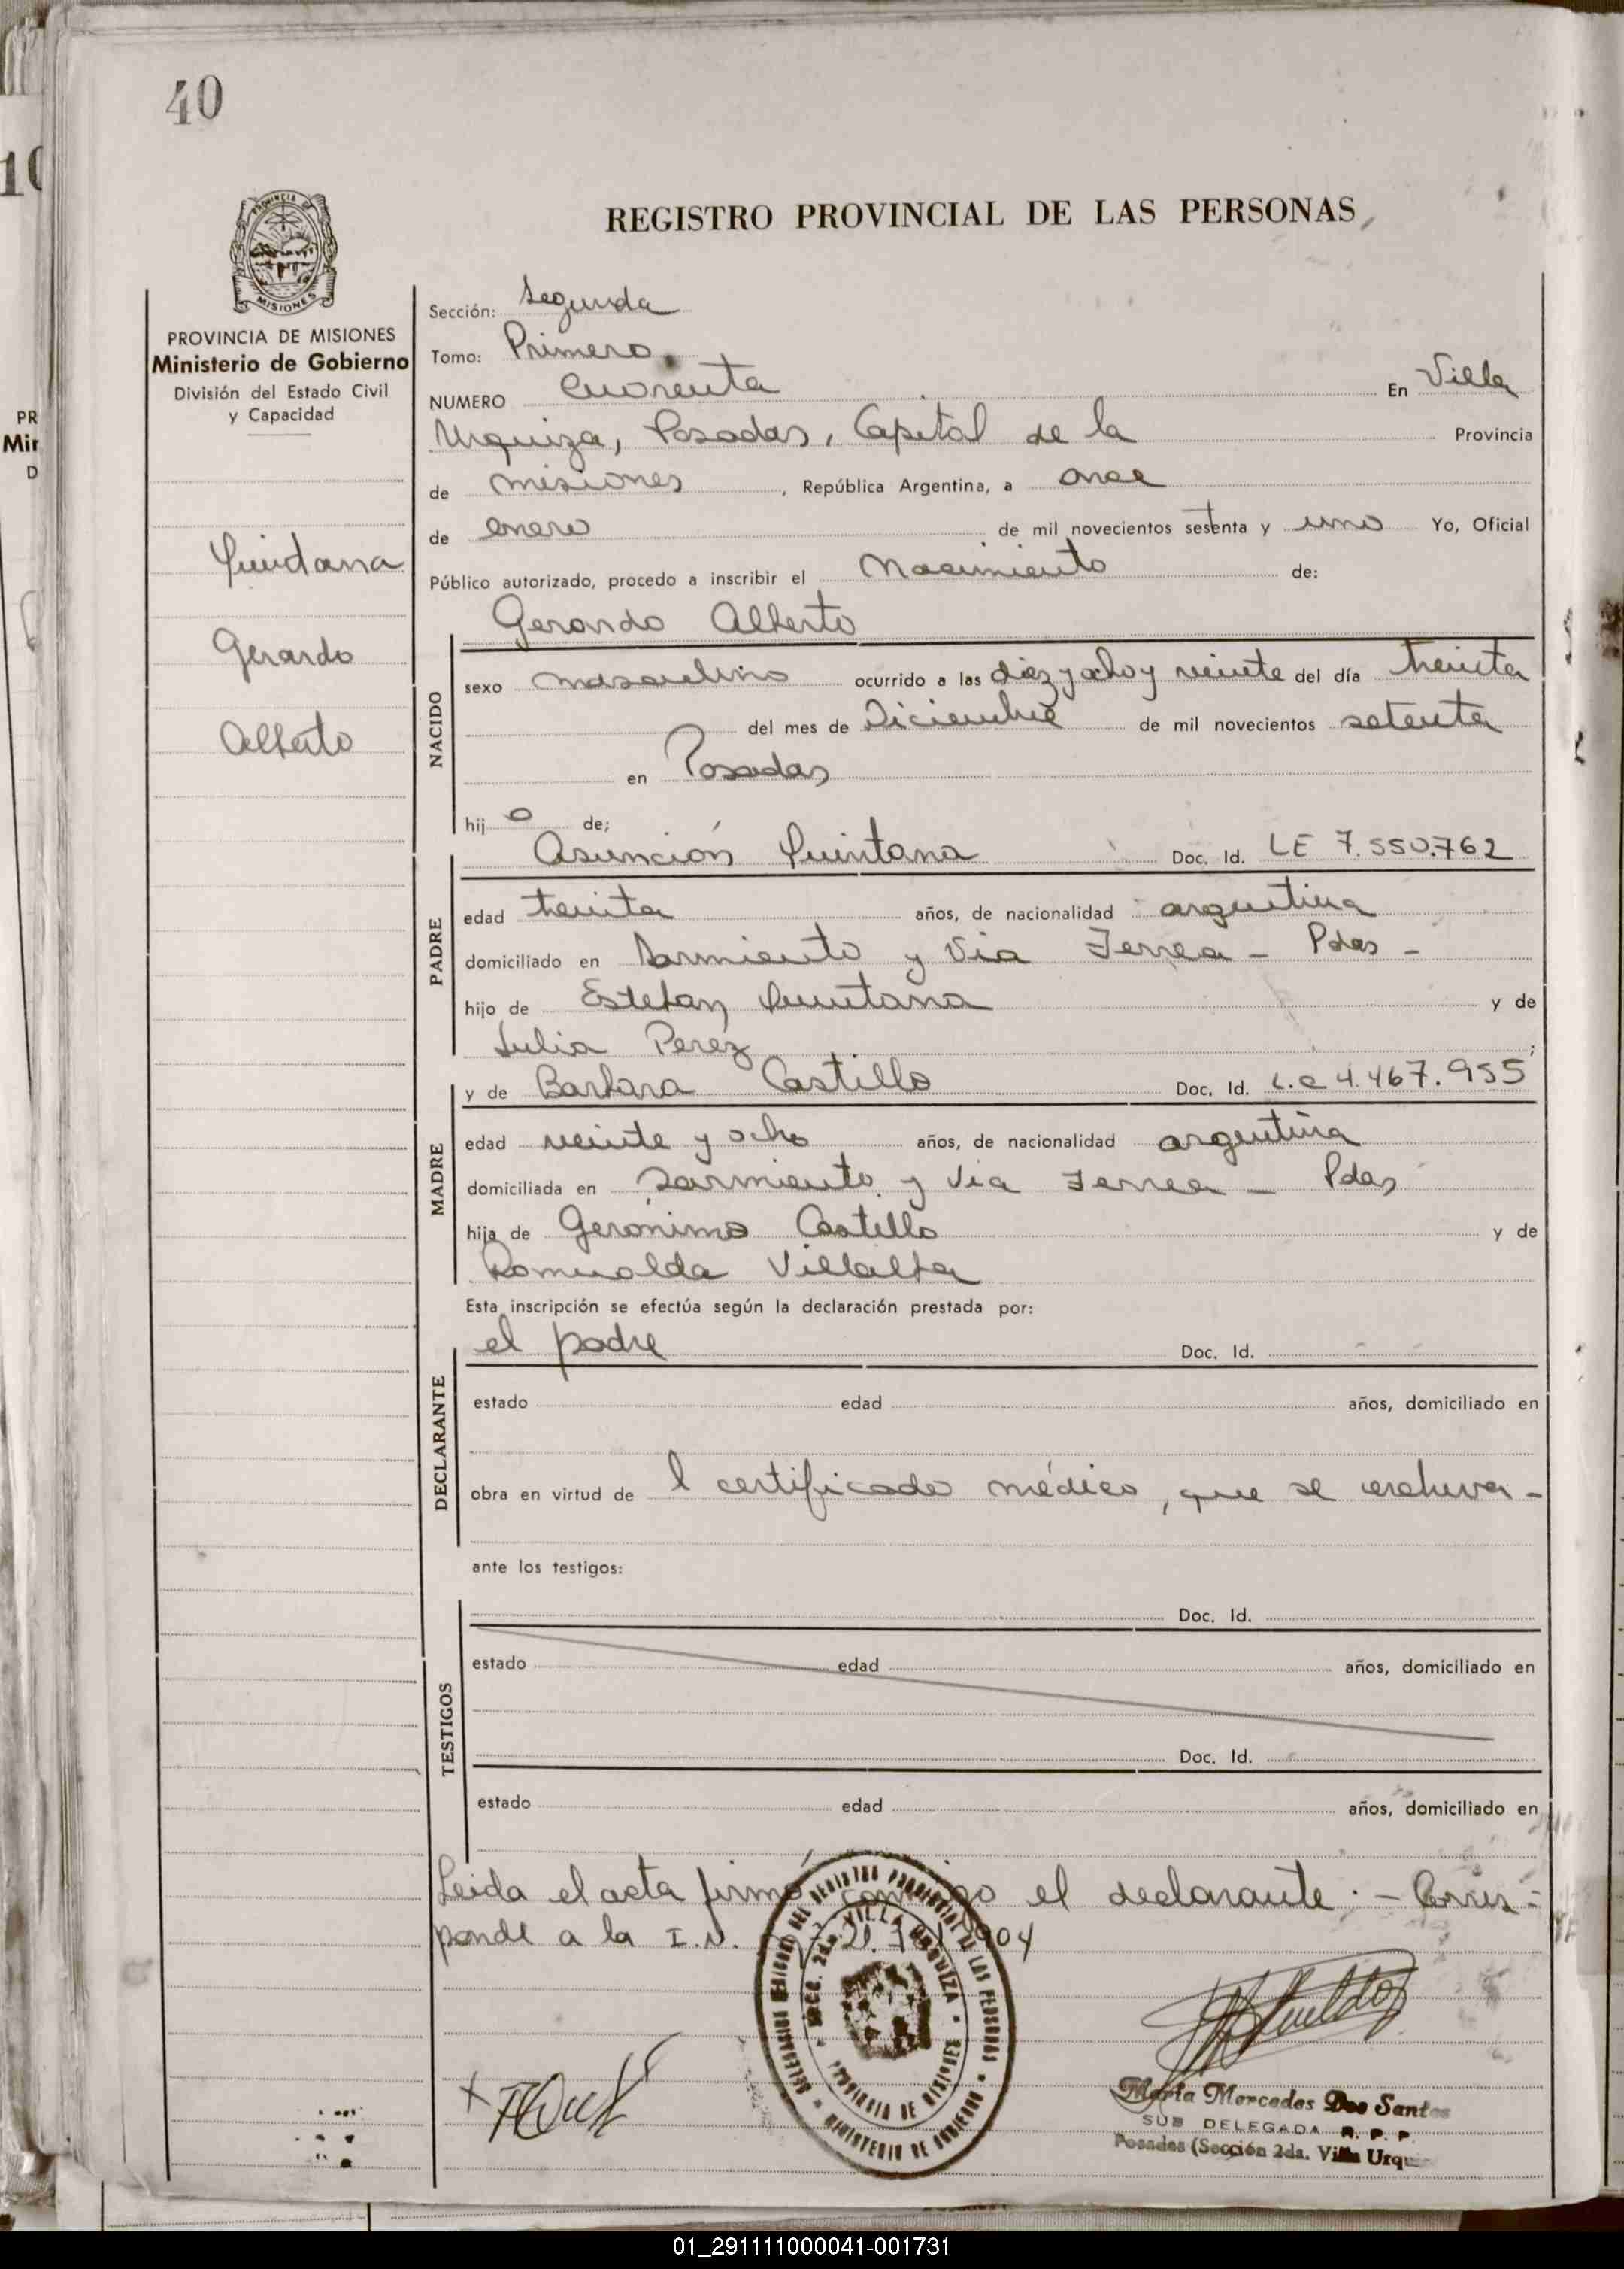 40
REGISTRO PROVINCIAL DE LAS PERSONAS
MISIONES
PROVINCIA DE MISIONES
Ministerio de Gobierno
División del Estado Civil
y Capacidad
Quintana
Gerardo
Alberto
Sección: Segunda
Tomo: Primero
NUMERO Cuarenta En Villa
Urquiza, Posadas, Capital de la Provincia
de misiones, República Argentina, a once
de enero de mil novecientos setenta y uno Yo, Oficial
Público autorizado, procedo a inscribir el Nacimiento de:
Gerardo Alberto
NACIDO
sexo masculino ocurrido a las diez y ocho y veinte del día treinta
del mes de Diciembre de mil novecientos setenta
en Posadas
hijo de;
Asunción Quintana Doc. Id. LE 7.550.762
PADRE
edad treinta años, de nacionalidad argentina
domiciliado en Sarmiento y Via Ferrea - Pdas -
hijo de Esteban Quintana y de
Julia Perez;
y de Barbara Castillo Doc. Id. L.C 4.467.955
MADRE
edad veinte y ocho años, de nacionalidad argentina
domiciliada en Sarmiento y Via Ferrea - Pdas
hija de Gerónimo Castillo y de
Romualda Villalba
Esta inscripción se efectúa según la declaración prestada por:
el padre Doc. Id.
DECLARANTE
estado edad años, domiciliado en
obra en virtud de l certificado médico, que se archiva -
ante los testigos:
Doc. Id.
TESTIGOS
estado edad años, domiciliado en
Doc. Id.
estado edad años, domiciliado en
Leida el acta firmó conmigo el declarante. - Corres-
ponde a la I.N. 904
DEL REGISTRO PROVINCIAL DE LAS PERSONAS
MINISTERIO DE GOBIERNO
SECC. 2da. VILLA URQUIZA
PROVINCIA DE MISIONES
María Mercedes Dos Santos
SUB DELEGADA R. P. P.
Posadas (Sección 2da. Villa Urqu
PR
Mir
D
01_291111000041-001731